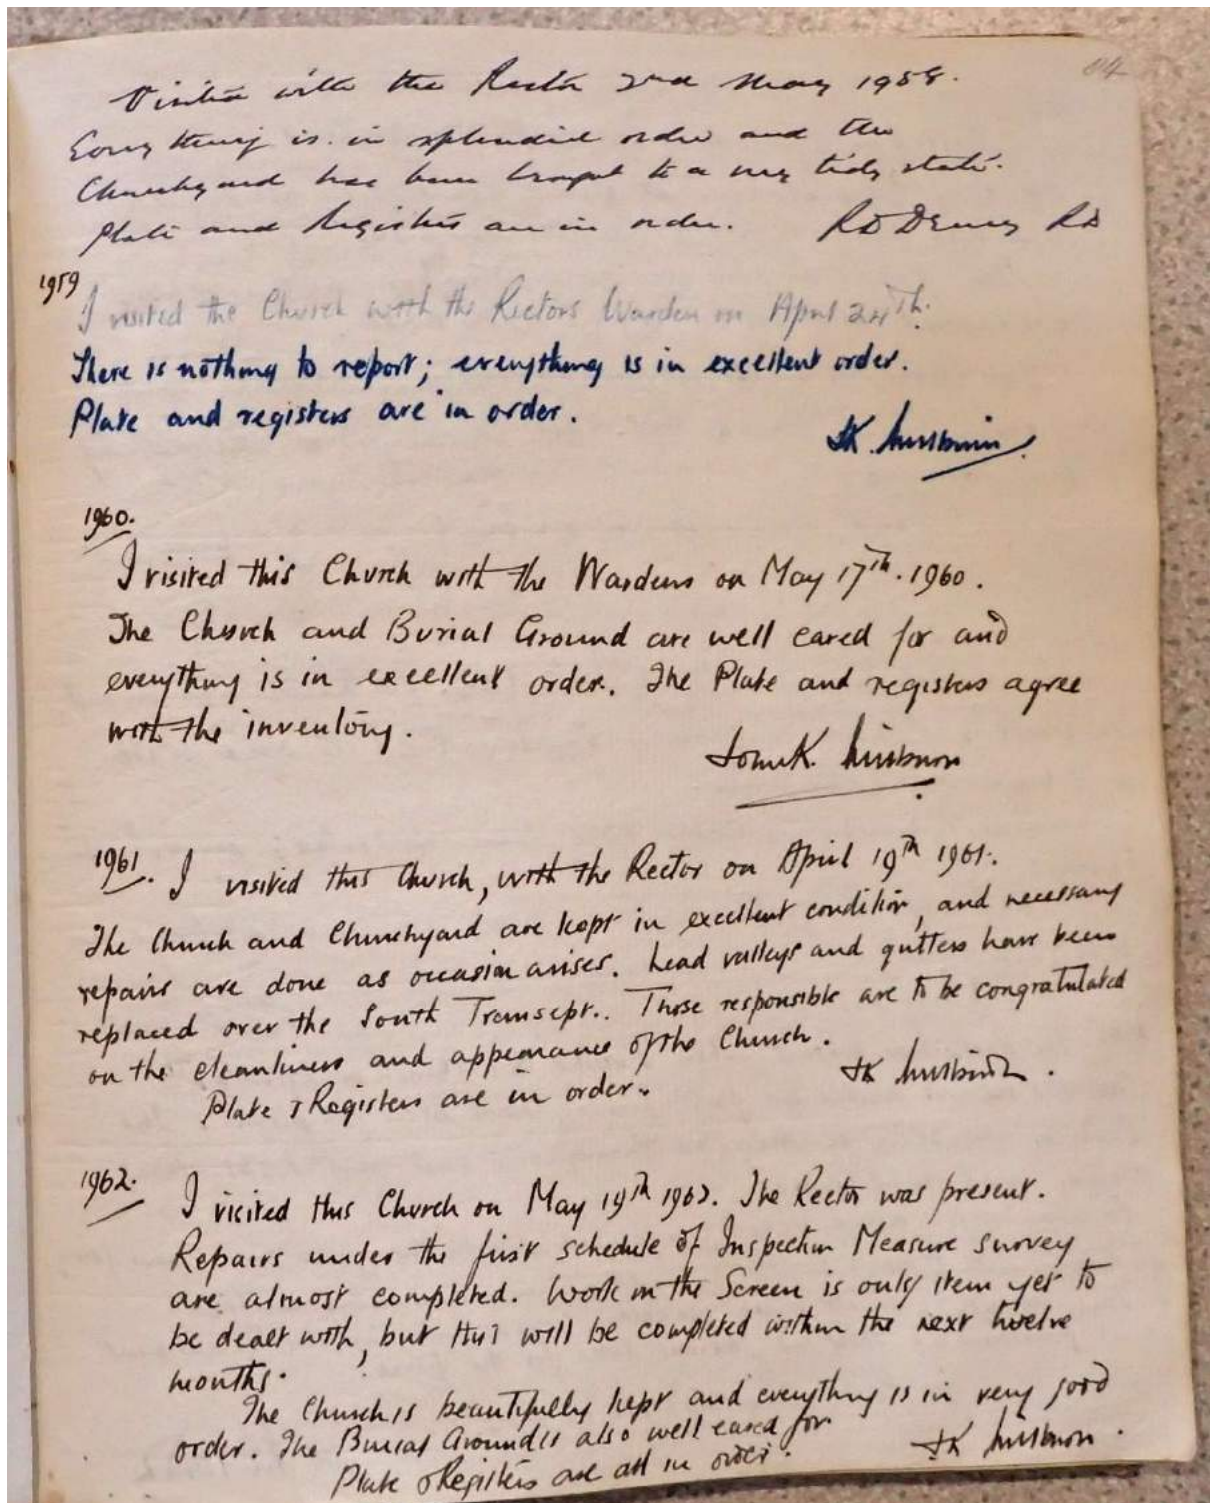 Visited with the Rector 2nd May 1958.
Everything is in splendid order and the
Churchyard has been brought to a very tidy state.
Plate and Registers are in order. RD
1959
I visited the Church with the Rectors Warden on April 24Th.
There is nothing to report; everything is in excellent order.
Plate and registers are in order.
JK.
1960.
I visited this Church with the Wardens on May 17th. 1960.
The Church and Burial Ground are well cared for and
everything is in excellent order. The Plate and registers agree
with the inventory.
John K.
1961. I visited this Church, with the Rector on April 19th 1961.
The Church and Churchyard are kept in excellent condition, and necessary
repairs are done as occasion arises. Lead valleys and gutters have been
replaced over the South Transept.. Those responsible are to be congratulated
on the cleanliness and appearance of the Church.
JK
Plate & Registers are in order.
1962.
I visited this Church on May 19th 1962. The Rector was present.
Repairs under the first schedule of Inspection Measure survey
are almost completed. Work on the Screen is only item yet to
be dealt with, but this will be completed within the next twelve
months.
The Church is beautifully kept and everything is in very good
order. The Burial Ground is also well cared for
JK
Plate & Registers are all in order.